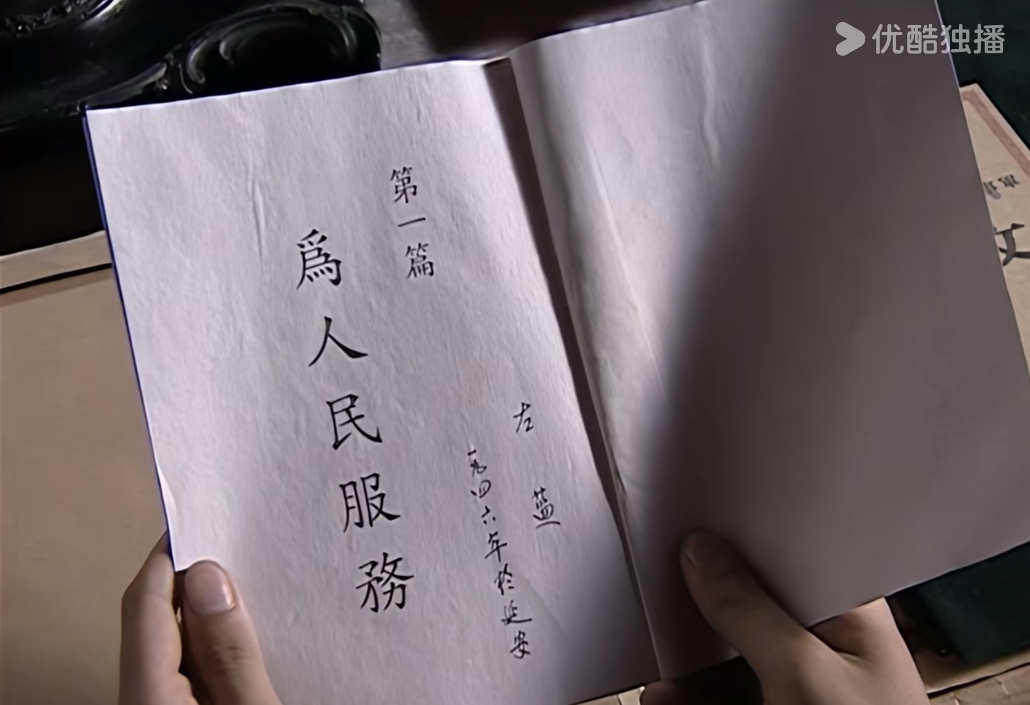 优酷独播
左蓝
一九四六年於延安
第一篇
爲人民服務